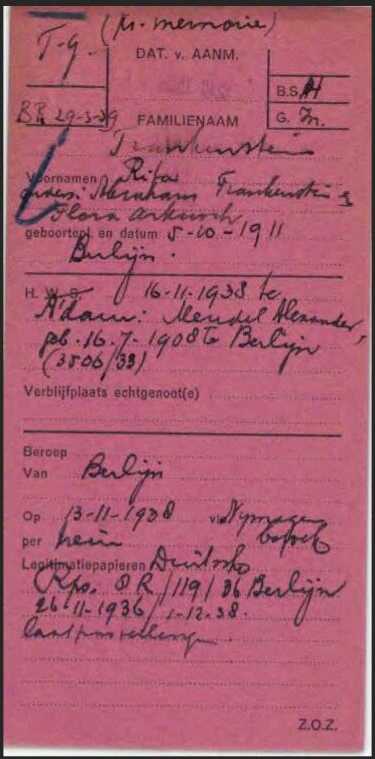 (pr. memorie)
T-G.
DAT. v. AANM.
B.S. H
BR 29-3-39
FAMILIENAAM
G. In.
Frankenstein
Voornamen Rifa
ouders: Abraham Frankenstein &
Flora
geboortepl. en datum 5-10-1911
Berlijn.
H. W. G. 16-11-1938 te
A'dam: Mendel Alexander,
geb. 16-7-1908 te Berlijn
(3506/33)
Verblijfplaats echtgenoot(e)
Beroep
Van Berlijn
Op 13-11-1938 via Nymegen
per trein bezoek
Legitimatiepapieren Duitsche
Rps. 8 R/119/36 Berlijn
26-11-1936/1-12-38.
Z.O.Z.